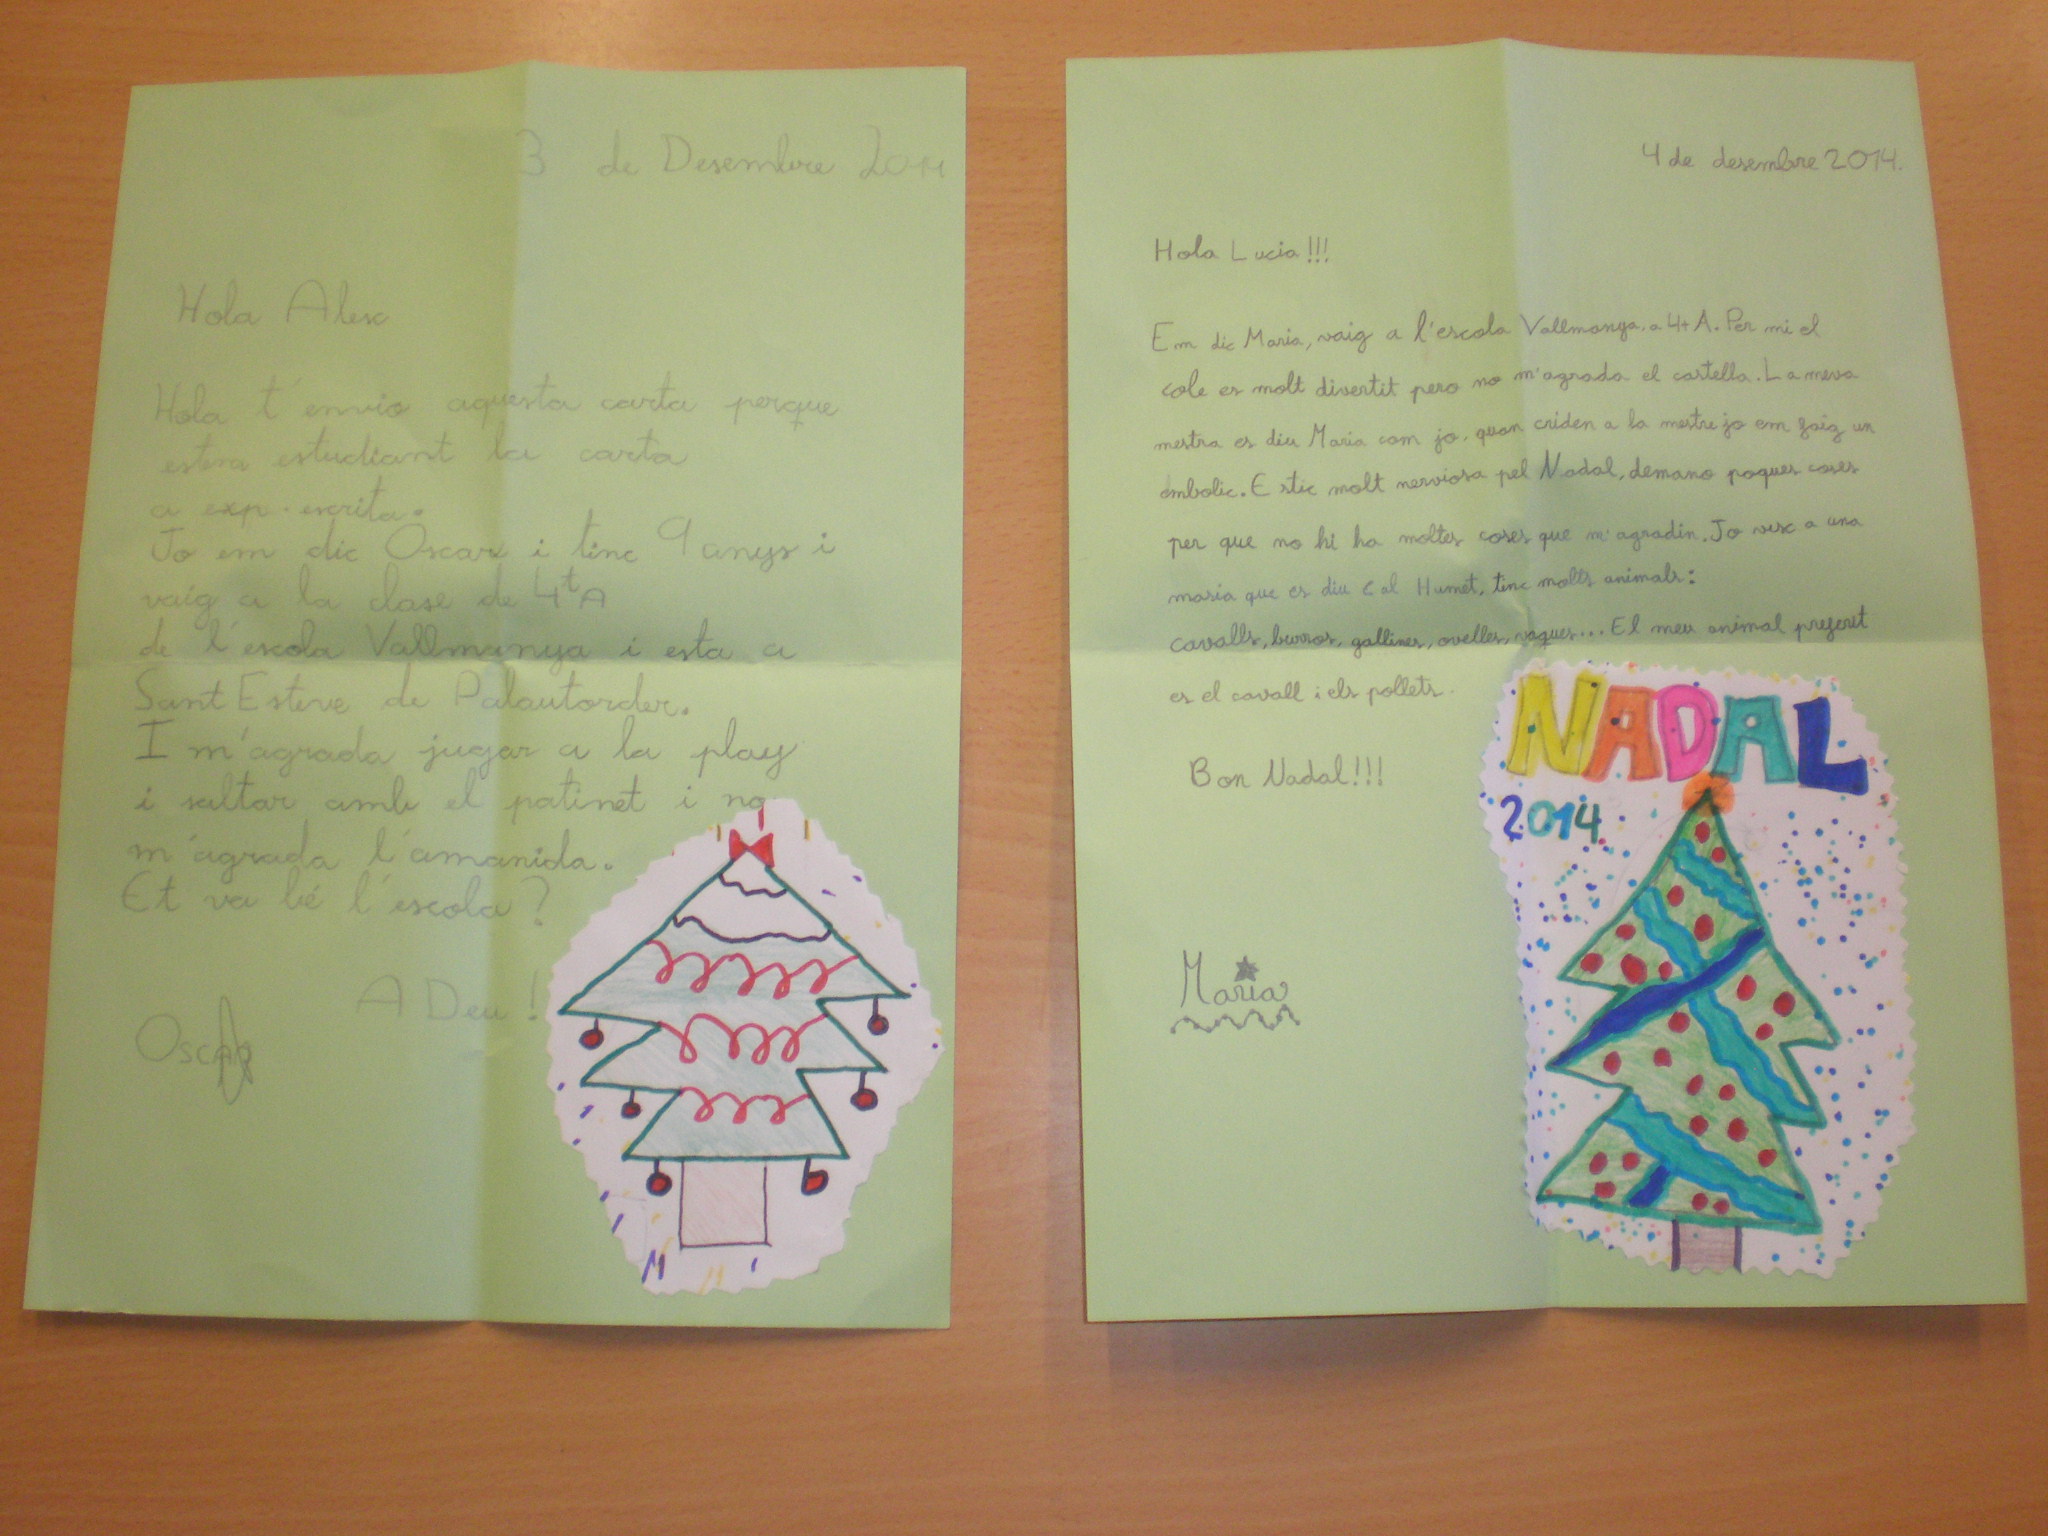 3 de Desembre 2014
Hola Alex
Hola t'envio aquesta carta perque
estem estudiant la carta
a exp. escrita.
Jo em dic Oscar i tinc 9 anys i
vaig a la clase de 4tA
de l'escola Vallmunya i esta a
Sant Esteve de Palautorder.
I m'agrada jugar a la play
i saltar amb el patinet i no
m'agrada l'amanida.
Et va bé l'escola?
A Deu!
Oscar
4 de desembre 2014.
Hola Lucia!!!
Em dic Maria, vaig a l'escola Vallmanya. a 4t A. Per mi el
cole es molt divertit pero no m'agrada el castella. La meva
mestra es diu Maria com jo, quan criden a la mestre jo em faig un
embolic. Estic molt nerviosa pel Nadal, demano poques coses
per que no hi ha moltes coses que m'agradin. Jo visc a una
masia que es diu Cal Humet, tinc molts animals:
cavalls, burros, gallines, ovelles, vaques... El meu animal preferit
es el cavall i els pollets.
Bon Nadal!!!
Maria
NADAL
2014